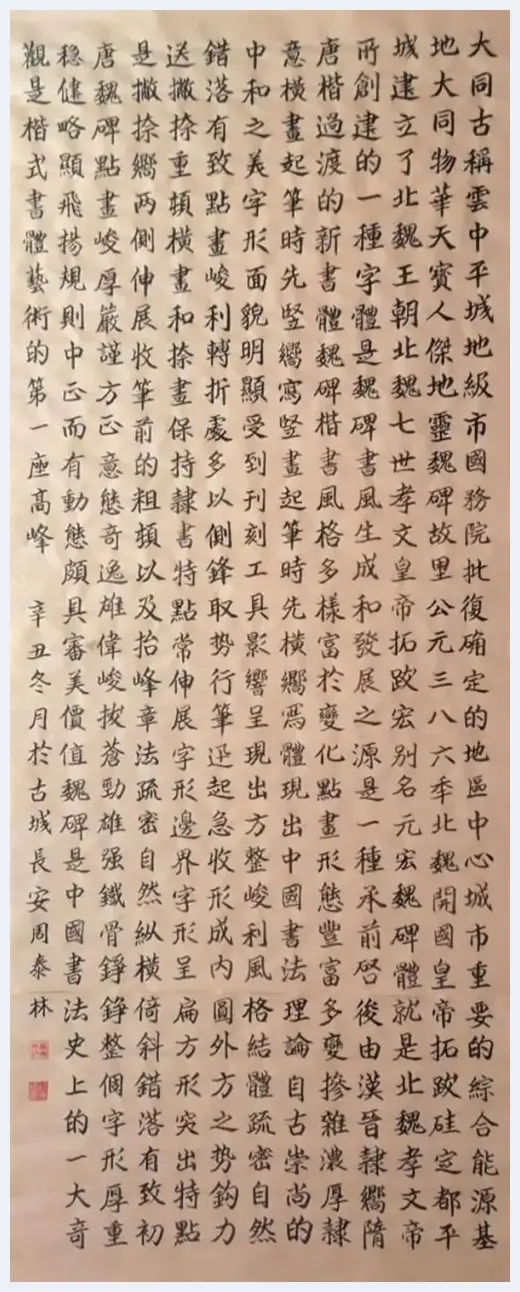 大同古稱雲中平城地級市國務院批復确定的地區中心城市重要的綜合能源基
地大同物華天寶人傑地靈魏碑故里公元三八六季北魏開國皇帝拓跋硅定都平
城建立了北魏王朝北魏七世孝文皇帝拓跋宏别名元宏魏碑體就是北魏孝文帝
所創建的一種字體是魏碑書風生成和發展之源是一種承前啓後由漢晉隸嚮隋
唐楷過渡的新書體魏碑楷書風格多樣富於變化點畫形態豐富多變摻雜濃厚隸
意橫畫起筆時先竪嚮寫竪畫起筆時先橫嚮寫體現出中國書法理論自古崇尚的
中和之美字形面貌明顯受到刊刻工具影響呈現出方整峻利風格結體疏密自然
錯落有致點畫峻利轉折處多以側鋒取势行筆迅起急收形成内圓外方之势鈎力
送撇捺重頓橫畫和捺畫保持隸書特點常伸展字形邊界字形呈扁方形突出特點
是撇捺嚮两側伸展收筆前的粗頓以及抬峰章法疏密自然縱橫倚斜錯落有致初
唐魏碑點畫峻厚嚴謹方正意態奇逸雄偉峻拔蒼勁雄强鐵骨錚錚整個字形厚重
稳健略顯飛揚規則中正而有動態頗具審美價值魏碑是中國書法史上的一大奇
觀是楷式書體藝術的第一座高峰 辛丑冬月於古城長安周泰林